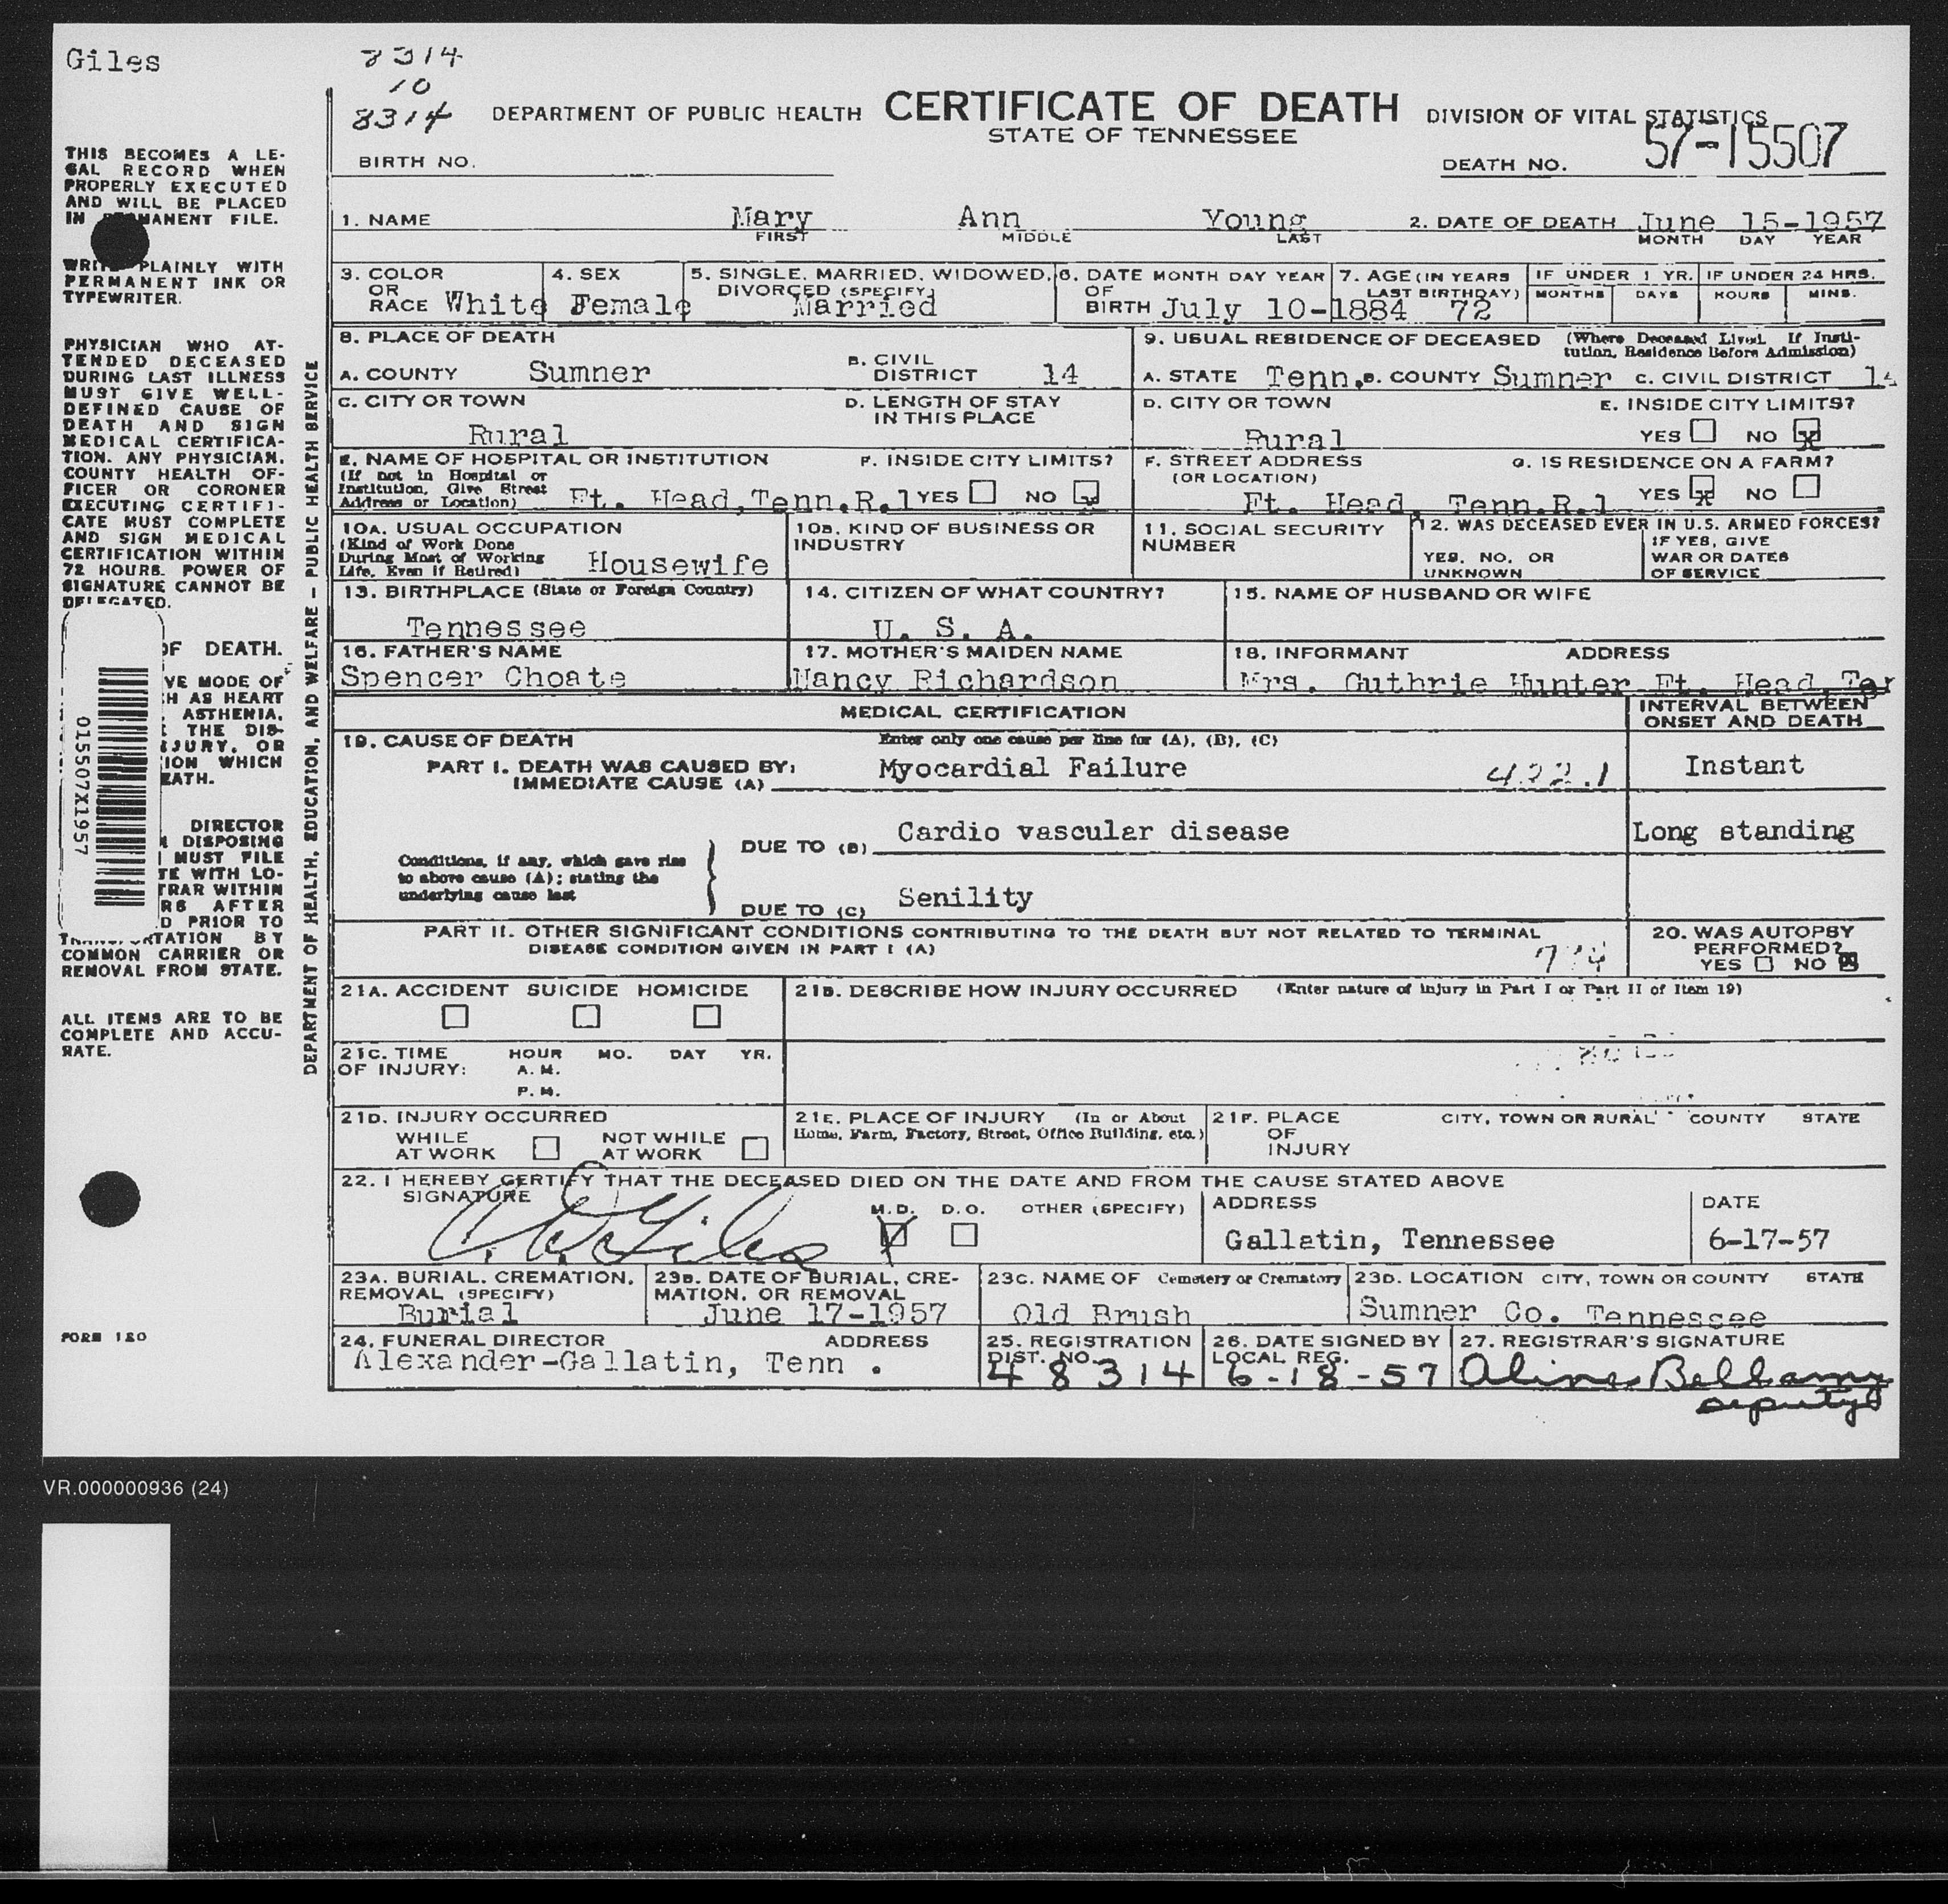 Giles
8314
10
8314
DEPARTMENT OF PUBLIC HEALTH CERTIFICATE OF DEATH DIVISION OF VITAL STATISTICS
STATE OF TENNESSEE
BIRTH NO. DEATH NO. 57-15507
THIS BECOMES A LE-
GAL RECORD WHEN
PROPERLY EXECUTED
AND WILL BE PLACED
IN MANENT FILE.
PLAINLY WITH
PERMANENT INK OR
TYPEWRITER.
PHYSICIAN WHO AT-
TENDED DECEASED
DURING LAST ILLNESS
MUST GIVE WELL-
DEFINED CAUSE OF
DEATH AND SIGN
MEDICAL CERTIFICA-
TION. ANY PHYSICIAN,
COUNTY HEALTH OF-
FICER OR CORONER
EXECUTING CERTIFI-
CATE MUST COMPLETE
AND SIGN MEDICAL
CERTIFICATION WITHIN
72 HOURS. POWER OF
SIGNATURE CANNOT BE
DELEGATED.
OF DEATH.
VE MODE OF
H AS HEART
ASTHENIA,
THE DIS-
JURY, OR
ION WHICH
EATH.
DIRECTOR
DISPOSING
MUST FILE
TE WITH LO-
TRAR WITHIN
RS AFTER
D PRIOR TO
RTATION BY
COMMON CARRIER OR
REMOVAL FROM STATE.
ALL ITEMS ARE TO BE
COMPLETE AND ACCU-
RATE.
FORM 180
015507X1957
DEPARTMENT OF HEALTH, EDUCATION, AND WELFARE — PUBLIC HEALTH SERVICE
1. NAME Mary Ann Young 2. DATE OF DEATH June 15-1957
FIRST MIDDLE LAST MONTH DAY YEAR
3. COLOR OR RACE White
4. SEX Female
5. SINGLE, MARRIED, WIDOWED, DIVORCED (SPECIFY) Married
6. DATE OF BIRTH MONTH DAY YEAR July 10-1884
7. AGE (IN YEARS LAST BIRTHDAY) 72
IF UNDER 1 YR. MONTHS DAYS
IF UNDER 24 HRS. HOURS MINS.
8. PLACE OF DEATH
A. COUNTY Sumner
B. CIVIL DISTRICT 14
9. USUAL RESIDENCE OF DECEASED (Where Deceased Lived. If Insti-
tution, Residence Before Admission)
A. STATE Tenn. B. COUNTY Sumner C. CIVIL DISTRICT 14
C. CITY OR TOWN Rural
D. LENGTH OF STAY IN THIS PLACE
D. CITY OR TOWN Rural
E. INSIDE CITY LIMITS? YES NO X
E. NAME OF HOSPITAL OR INSTITUTION
(If not in Hospital or
Institution, Give Street
Address or Location) Ft. Head, Tenn.R.1
F. INSIDE CITY LIMITS? YES NO X
F. STREET ADDRESS (OR LOCATION) Ft. Head, Tenn.R.1
G. IS RESIDENCE ON A FARM? YES X NO
10A. USUAL OCCUPATION
(Kind of Work Done
During Most of Working
Life, Even if Retired) Housewife
10B. KIND OF BUSINESS OR INDUSTRY
11. SOCIAL SECURITY NUMBER
12. WAS DECEASED EVER IN U.S. ARMED FORCES?
YES, NO, OR UNKNOWN
IF YES, GIVE WAR OR DATES OF SERVICE
13. BIRTHPLACE (State or Foreign Country) Tennessee
14. CITIZEN OF WHAT COUNTRY? U. S. A.
15. NAME OF HUSBAND OR WIFE
16. FATHER'S NAME Spencer Choate
17. MOTHER'S MAIDEN NAME Nancy Richardson
18. INFORMANT ADDRESS Mrs. Guthrie Hunter Ft. Head, Ten
MEDICAL CERTIFICATION
INTERVAL BETWEEN
ONSET AND DEATH
19. CAUSE OF DEATH Enter only one cause per line for (A), (B), (C)
PART I. DEATH WAS CAUSED BY:
IMMEDIATE CAUSE (A) Myocardial Failure 422.1 Instant
Conditions, if any, which gave rise
to above cause (A); stating the
underlying cause last
DUE TO (B) Cardio vascular disease Long standing
DUE TO (C) Senility
PART II. OTHER SIGNIFICANT CONDITIONS CONTRIBUTING TO THE DEATH BUT NOT RELATED TO TERMINAL
DISEASE CONDITION GIVEN IN PART I (A)
20. WAS AUTOPSY PERFORMED? YES NO X
21A. ACCIDENT SUICIDE HOMICIDE
21B. DESCRIBE HOW INJURY OCCURRED (Enter nature of injury in Part I or Part II of Item 19)
21C. TIME OF INJURY: HOUR MO. DAY YR.
A. M.
P. M.
21D. INJURY OCCURRED
WHILE AT WORK NOT WHILE AT WORK
21E. PLACE OF INJURY (In or About
Home, Farm, Factory, Street, Office Building, etc.)
21F. PLACE OF INJURY CITY, TOWN OR RURAL COUNTY STATE
22. I HEREBY CERTIFY THAT THE DECEASED DIED ON THE DATE AND FROM THE CAUSE STATED ABOVE
SIGNATURE Giles
M.D. X D.O. OTHER (SPECIFY)
ADDRESS Gallatin, Tennessee
DATE 6-17-57
23A. BURIAL, CREMATION, REMOVAL (SPECIFY) Burial
23B. DATE OF BURIAL, CRE-
MATION, OR REMOVAL June 17-1957
23C. NAME OF Cemetery or Crematory Old Brush
23D. LOCATION CITY, TOWN OR COUNTY STATE Sumner Co. Tennessee
24. FUNERAL DIRECTOR ADDRESS Alexander-Gallatin, Tenn .
25. REGISTRATION DIST. NO. 48314
26. DATE SIGNED BY LOCAL REG. 6-18-57
27. REGISTRAR'S SIGNATURE Aline Bellamy
deputy
VR.000000936 (24)